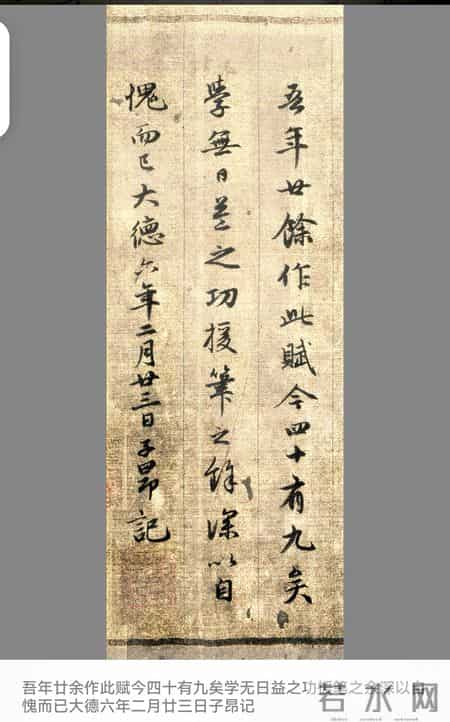 吾年廿餘作此賦今四十有九矣
學無日益之功援筆之餘深以自
愧而已大德六年二月廿三日子昂記
吾年廿余作此赋今四十有九矣学无日益之功援笔之余深以自
愧而已大德六年二月廿三日子昂记
若水网